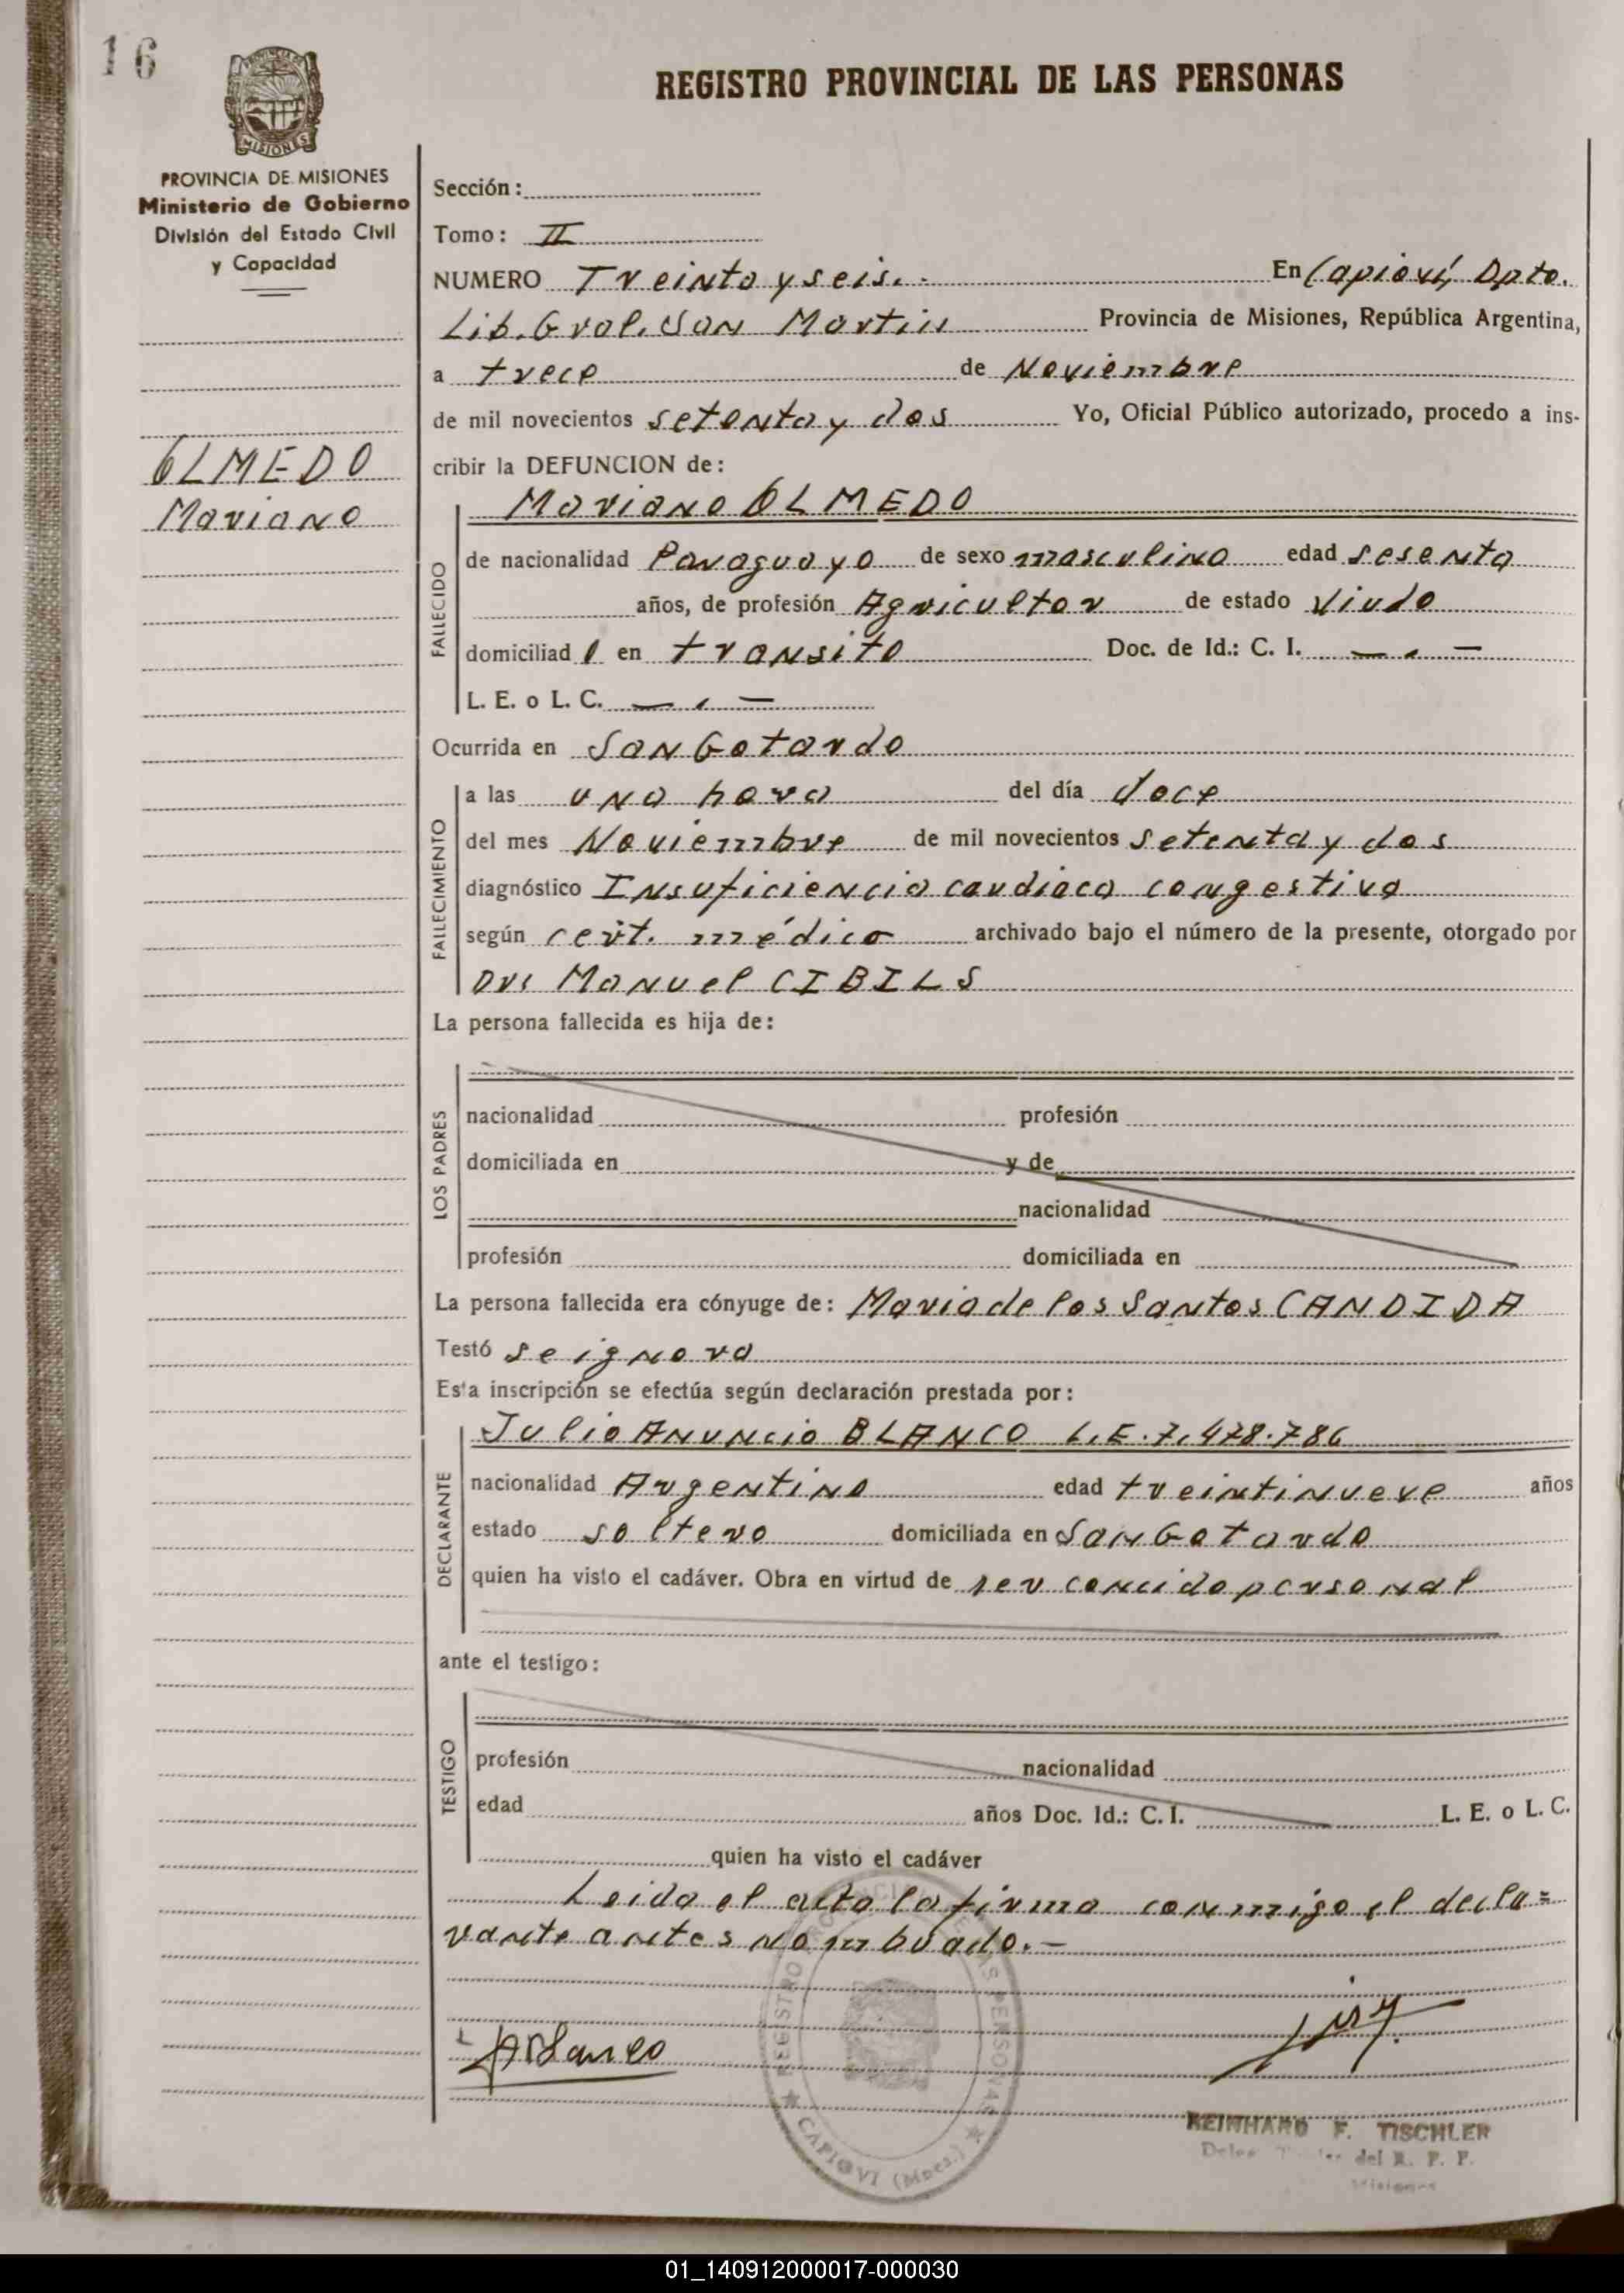 16
REGISTRO PROVINCIAL DE LAS PERSONAS
PROVINCIA DE MISIONES
Ministerio de Gobierno
División del Estado Civil
y Capacidad
OLMEDO
Mariano
Sección:
Tomo: II
NUMERO Treinta y seis.- En Capioví, Dpto.
Lib. Gral. San Martin Provincia de Misiones, República Argentina,
a trece de Noviembre
de mil novecientos setenta y dos Yo, Oficial Público autorizado, procedo a ins-
cribir la DEFUNCION de:
FALLECIDO
Mariano OLMEDO
de nacionalidad Paraguayo de sexo masculino edad sesenta
años, de profesión Agricultor de estado Viudo
domiciliad o en transito Doc. de Id.: C. I. — . —
L. E. o L. C. — . —
Ocurrida en San Gotardo
FALLECIMIENTO
a las una hora del día doce
del mes Noviembre de mil novecientos setenta y dos
diagnóstico Insuficiencia cardiaca congestiva
según cert. médico archivado bajo el número de la presente, otorgado por
Dr. Manuel CIBILS
La persona fallecida es hija de:
LOS PADRES
nacionalidad profesión
domiciliada en y de
nacionalidad
profesión domiciliada en
La persona fallecida era cónyuge de: Maria de los Santos CANDIDA
Testó se ignora
Esta inscripción se efectúa según declaración prestada por:
DECLARANTE
Julio Anuncio BLANCO L.E. 7.478.786
nacionalidad Argentino edad treintinueve años
estado soltero domiciliada en San Gotardo
quien ha visto el cadáver. Obra en virtud de ser concido personal
ante el testigo:
TESTIGO
profesión nacionalidad
edad años Doc. Id.: C. I. L. E. o L. C.
quien ha visto el cadáver
Leida el acta la firma conmigo el decla=
rante antes nombrado.-
JABlanco
REGISTRO PROVINCIAL DE LAS PERSONAS
CAPIOVI (Mnes.)
REINHARD F. TISCHLER
del R. P. P.
Misiones
01_140912000017-000030